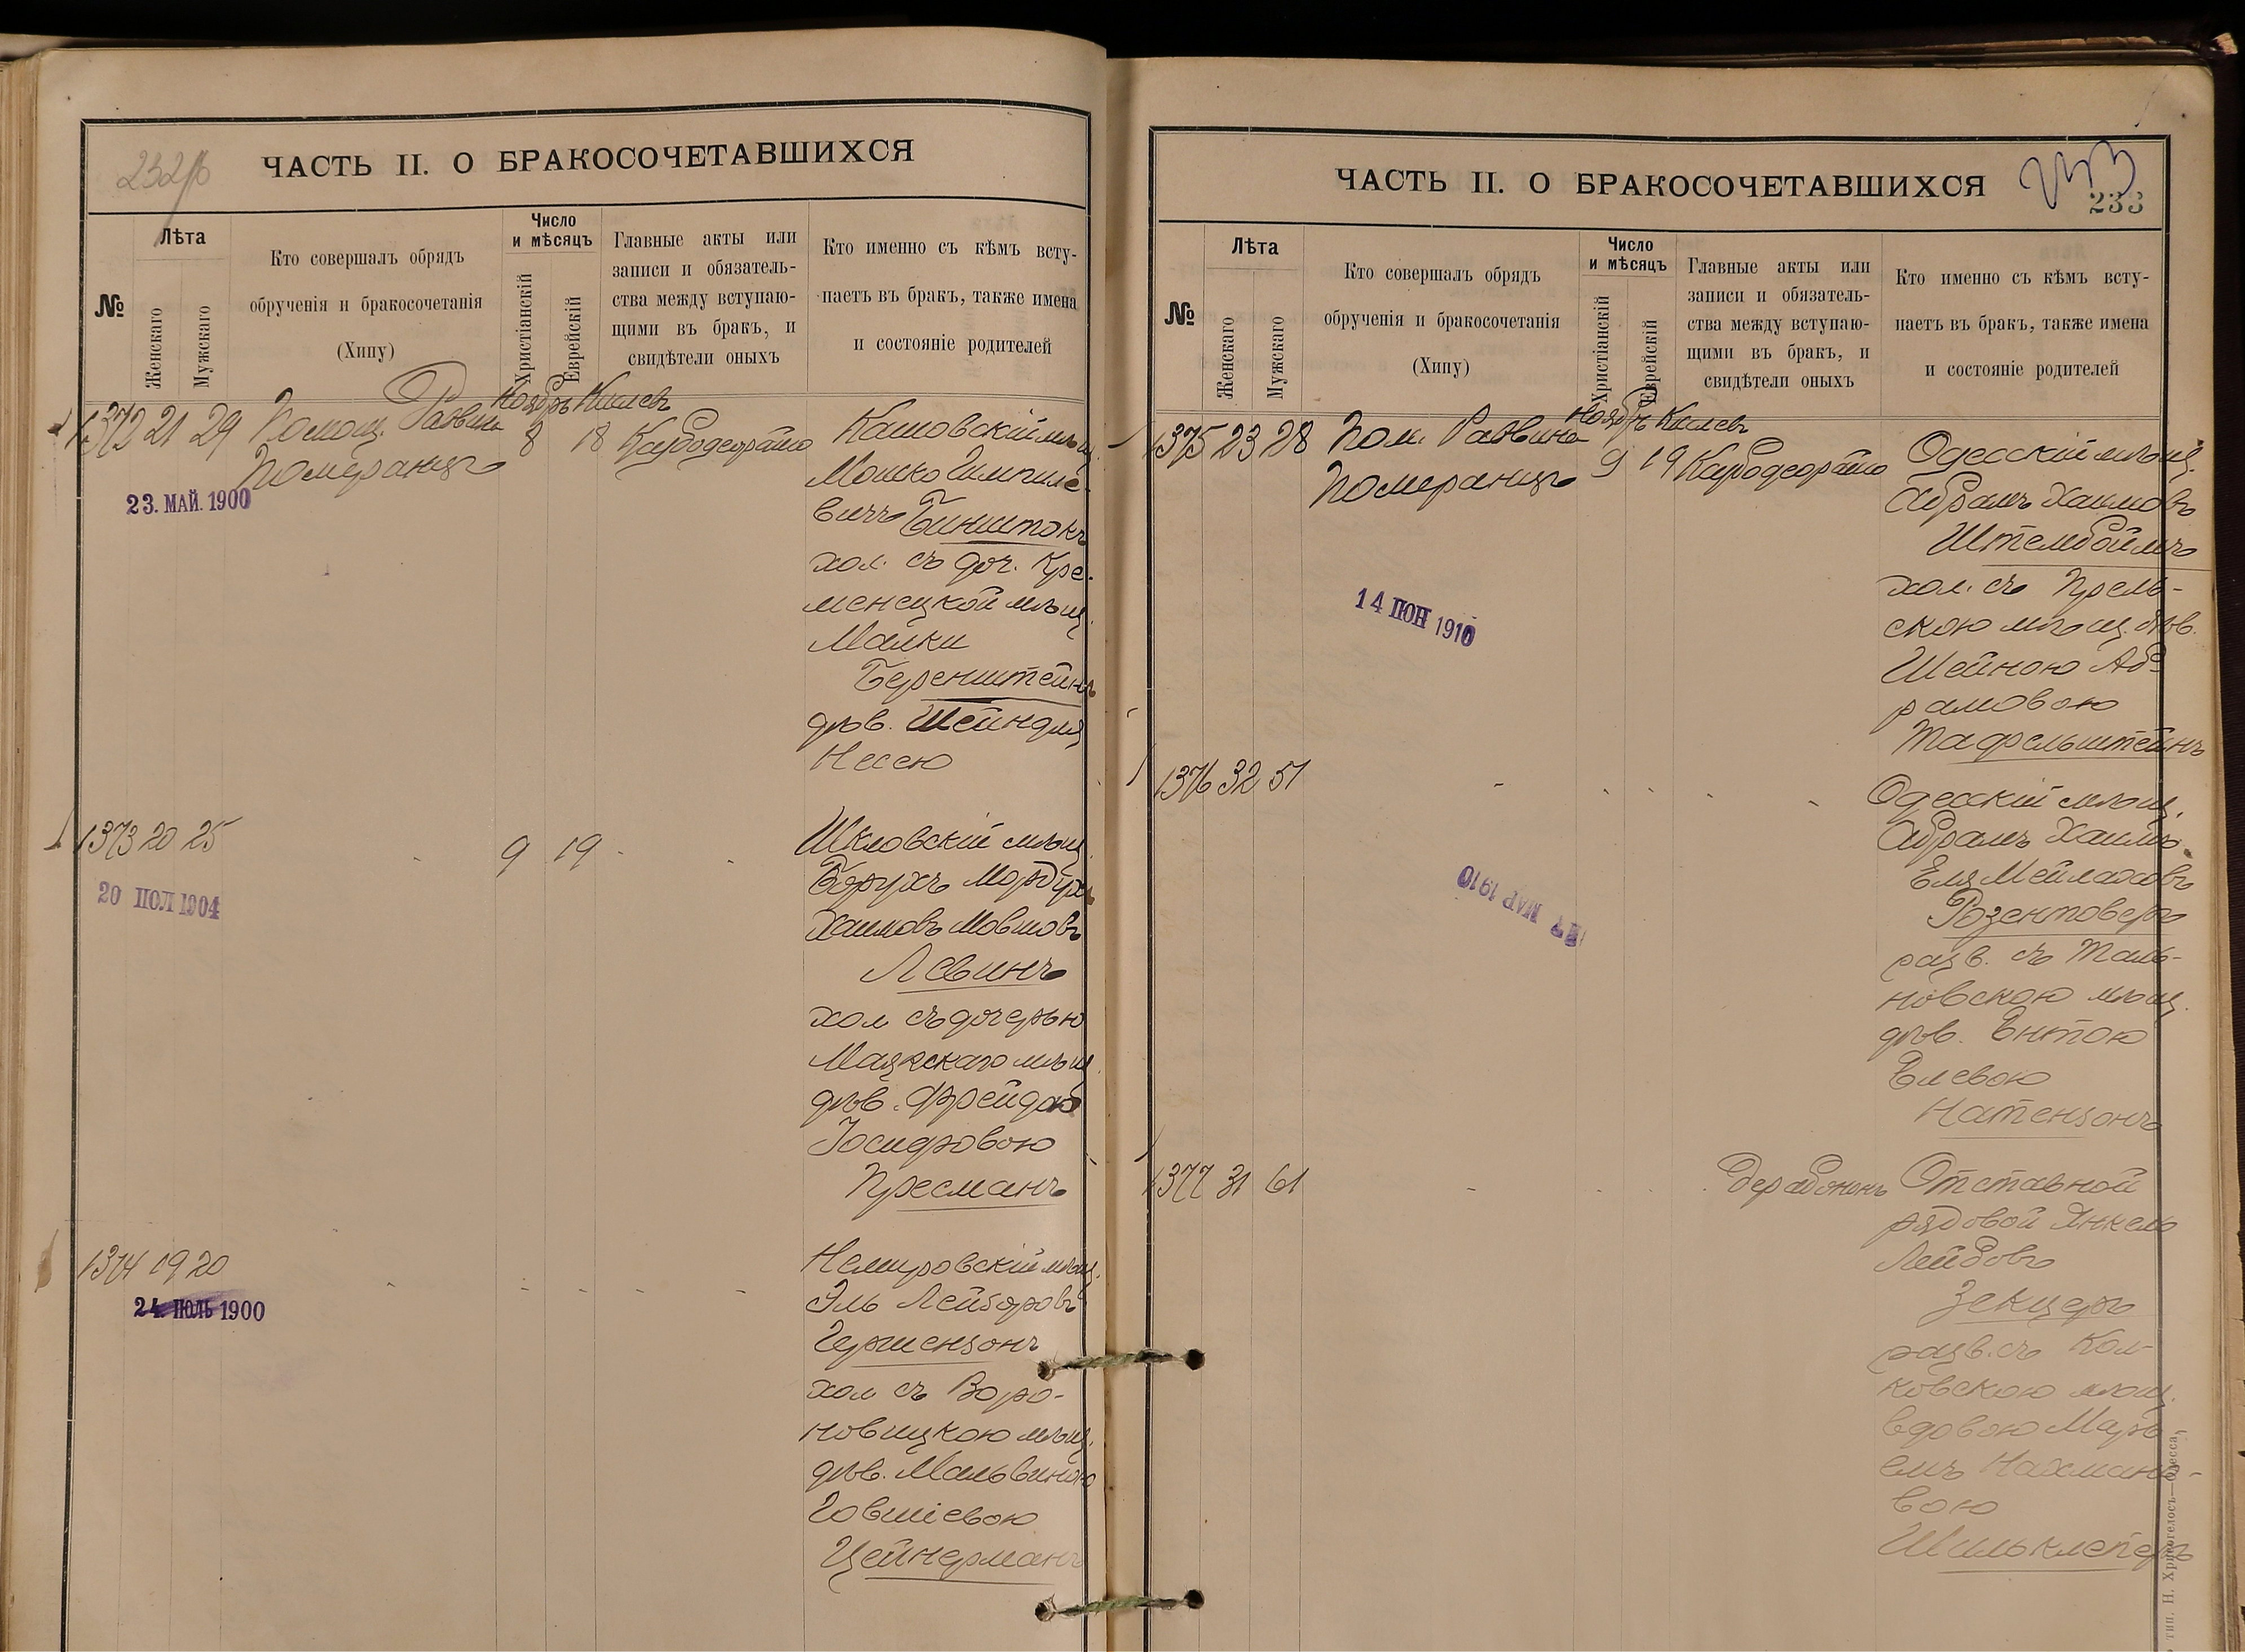 232 об
ЧАСТЬ II. О БРАКОСОЧЕТАВШИХСЯ
№
Лѣта
Женскаго
Мужскаго
Кто совершалъ обрядъ
обрученія и бракосочетанія
(Хипу)
Число
и мѣсяцъ
Христіанскій
Еврейскій
Главные акты или
записи и обязатель-
ства между вступаю-
щими въ бракъ, и
свидѣтели оныхъ
Кто именно съ кѣмъ всту-
паетъ въ бракъ, также имена
и состояніе родителей
1372 21 29 Помощ. Раввина
Померанцъ
Ноябрь Кислевъ
8 18
23. МАЙ. 1900
мѣщ.
Мошко
вичъ Бинштокъ
хол. съ доч. Кре-
менецкой мѣщ.
Малки
Беренштейнъ
дѣв. Шейндля
Несею
1373 20 25
9 19
20 ІЮЛ 1904
Шкловскій мѣщ.
Борухъ Мордух
Хаимовъ Мовшовъ
Левинъ
хол съ дочерью
Маякскаго мѣщ.
дѣв. Фрейдою
Іосифовою
Пресманъ
1374 19 20
24. ІЮЛЬ 1900
Немировскій мѣщ.
Эль
Гершензонъ
хол съ Воро-
новицкою мѣщ.
дѣв. Мальвиною
Говшіевою
Цейнерманъ
233
233
ЧАСТЬ II. О БРАКОСОЧЕТАВШИХСЯ
№
Лѣта
Женскаго
Мужскаго
Кто совершалъ обрядъ
обрученія и бракосочетанія
(Хипу)
Число
и мѣсяцъ
Христіанскій
Еврейскій
Главные акты или
записи и обязатель-
ства между вступаю-
щими въ бракъ, и
свидѣтели оныхъ
Кто именно съ кѣмъ всту-
паетъ въ бракъ, также имена
и состояніе родителей
1375 23 28 Пом. Раввина
Померанцъ
Ноябрь Кислевъ
9 19
14 ІЮН 1910
Одесскій мѣщ.
Абрамъ Хаимовъ
Штембоймъ
хол. съ
скою мѣщ. дѣв.
Шейною Аб-
рамовою
Тафельштейнъ
1376 32 51
МАР 1910
Одесскій мѣщ.
Абрамъ Хаимъ
Еля Мейлаховъ
Розентоверъ
разв. съ Таль-
новскою мѣщ.
дѣв. Ентою
Елевою
Натензонъ
1377 31 61
Отставной
рядовой Янкель
Лейбовъ
Зекцеръ
разв. съ Кол-
ковскою мѣщ.
вдовою Марь
емъ Нахмано-
вою
Шильклеперъ
тип. И. Хрисогелосъ—Одесса,